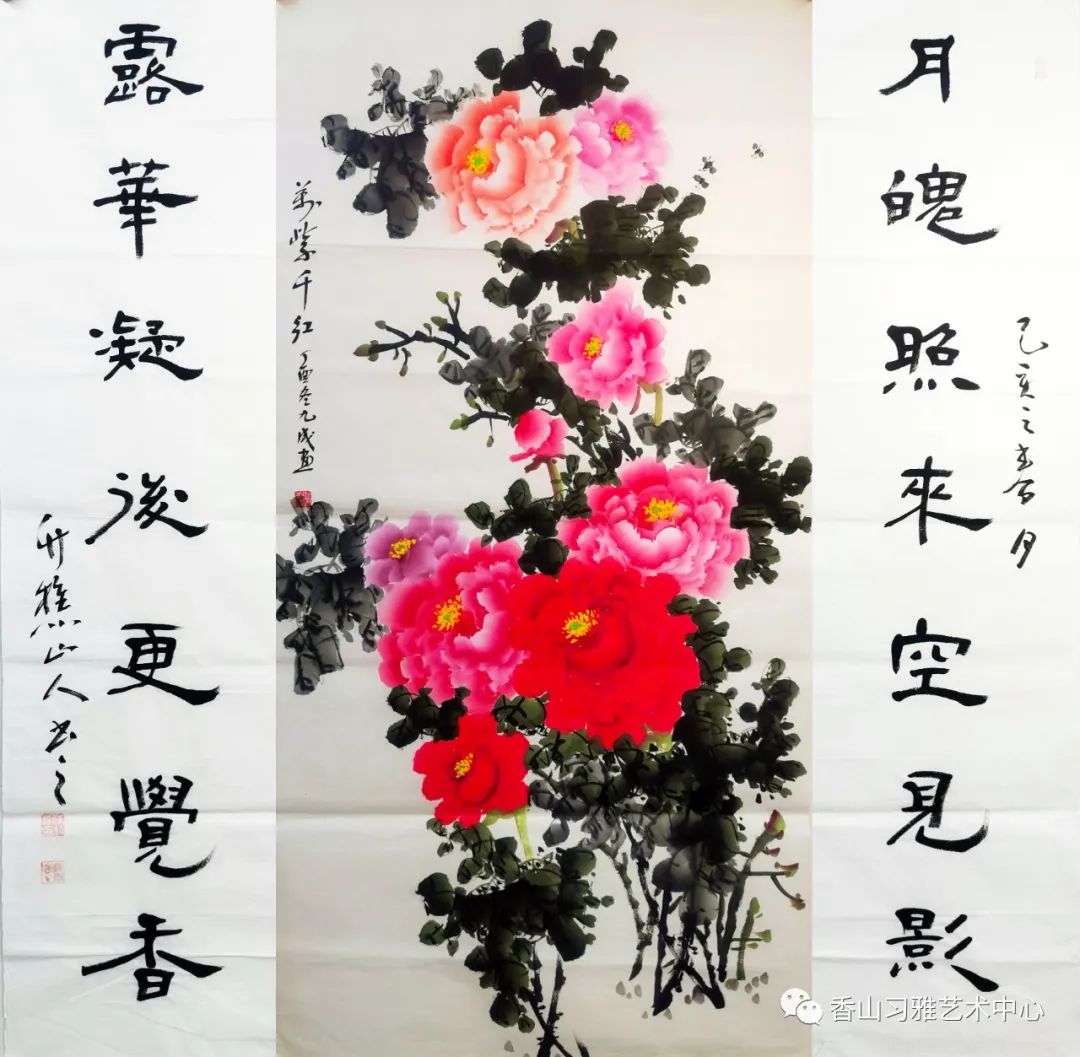 月魄照來空見影
己亥之春月
萬紫千红
丁酉冬九成画
露華凝後更覺香
竹樵山人书之
香山习雅艺术中心